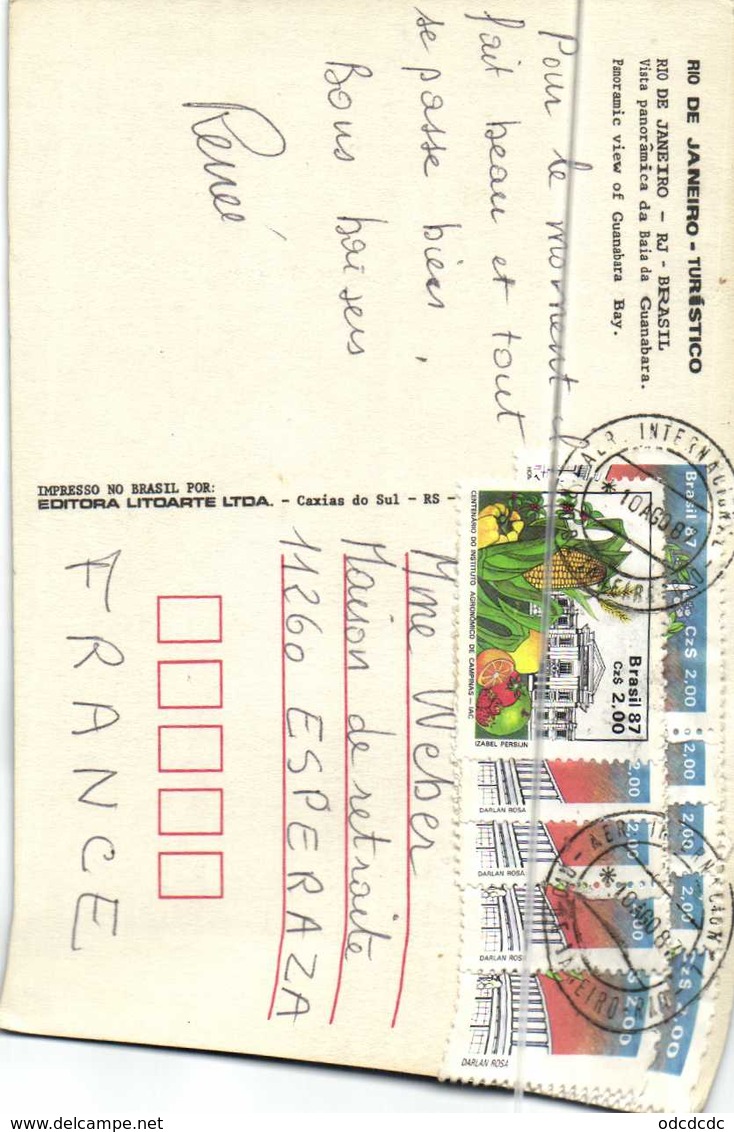 RIO DE JANEIRO - TURÍSTICO
RIO DE JANEIRO - RJ - BRASIL
Vista panorâmica da Baia da Guanabara.
Panoramic view of Guanabara Bay.
Pour le moment il
fait beau et tout
se passe bien.
Bons baisers
Renée
IMPRESSO NO BRASIL POR:
EDITORA LITOARTE LTDA. - Caxias do Sul - RS -
Mme Weber
Maison de retraite
11260 ESPERAZA
FRANCE
Brasil 87
Cz$ 2,00
CENTENÁRIO DO INSTITUTO AGRONÔMICO DE CAMPINAS - IAC
IZABEL PERSIJN
Brasil 87 Cz$ 2,00
2,00
2,00
2,00
Cz$ 2,00
2,00
2,00
2,00
2,00
DARLAN ROSA
DARLAN ROSA
DARLAN ROSA
DARLAN ROSA
AER. INTERNACIONAL
10 AGO 87
AER. INTERNACIONAL
10 AGO 87
odcdcdc